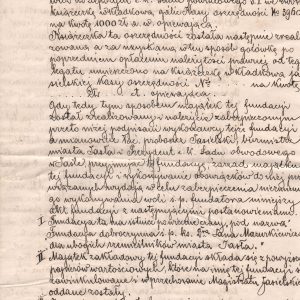 książeczkę wkładkową galicyjskiej kasy oszczędności No 3960
na kwotę 1000 zł. a. w. opiewającą.
Książeczka ta oszczędności została następnie zreali-
zowaną a za uzyskaną w ten sposób gotówkę po
poprzedniem opłaceniu należytości prawnej od tego
legatu umieszczono na książeczkę wkładkową ja-
sielskiej Kasy oszczędności No na kwotę
Złr. ct. opiewająca.
Gdy tedy tym sposobem majątek tej fundacji
został zrealizowany i należycie zabezpieczonym
przeto niżej podpisani wykonawcy tejże fundacji
a mianowicie Tut. proboster Jasielski, burmistrz
miasta Jasła i Prezydent c. k. Sądu obwodowego
w Jaśle przyjmując tę fundację, zarząd majątku
tej fundacji i wykonywanie obowiązków do niej przy-
wiązanych wydają w celu zabezpieczenia niezmienne-
go wykonywania woli ś. p. fundatora niniejszy
akt fundacji z następującymi postanowieniami.
I. Fundacja ta ma istnieć po wieczne czasy, pod nazwą
Fundacja dobroczynna ś. p. ks. Mazurkiewicza
dla ubogich rzemieślników miasta Jasła."
II. Majątek zakładowy tej fundacji składa się z powyższych
papierów wartościowych, które na imię tej fundacji za-
winkulowane i w przechowanie Magistratu Jasielskiego
oddane zostały.